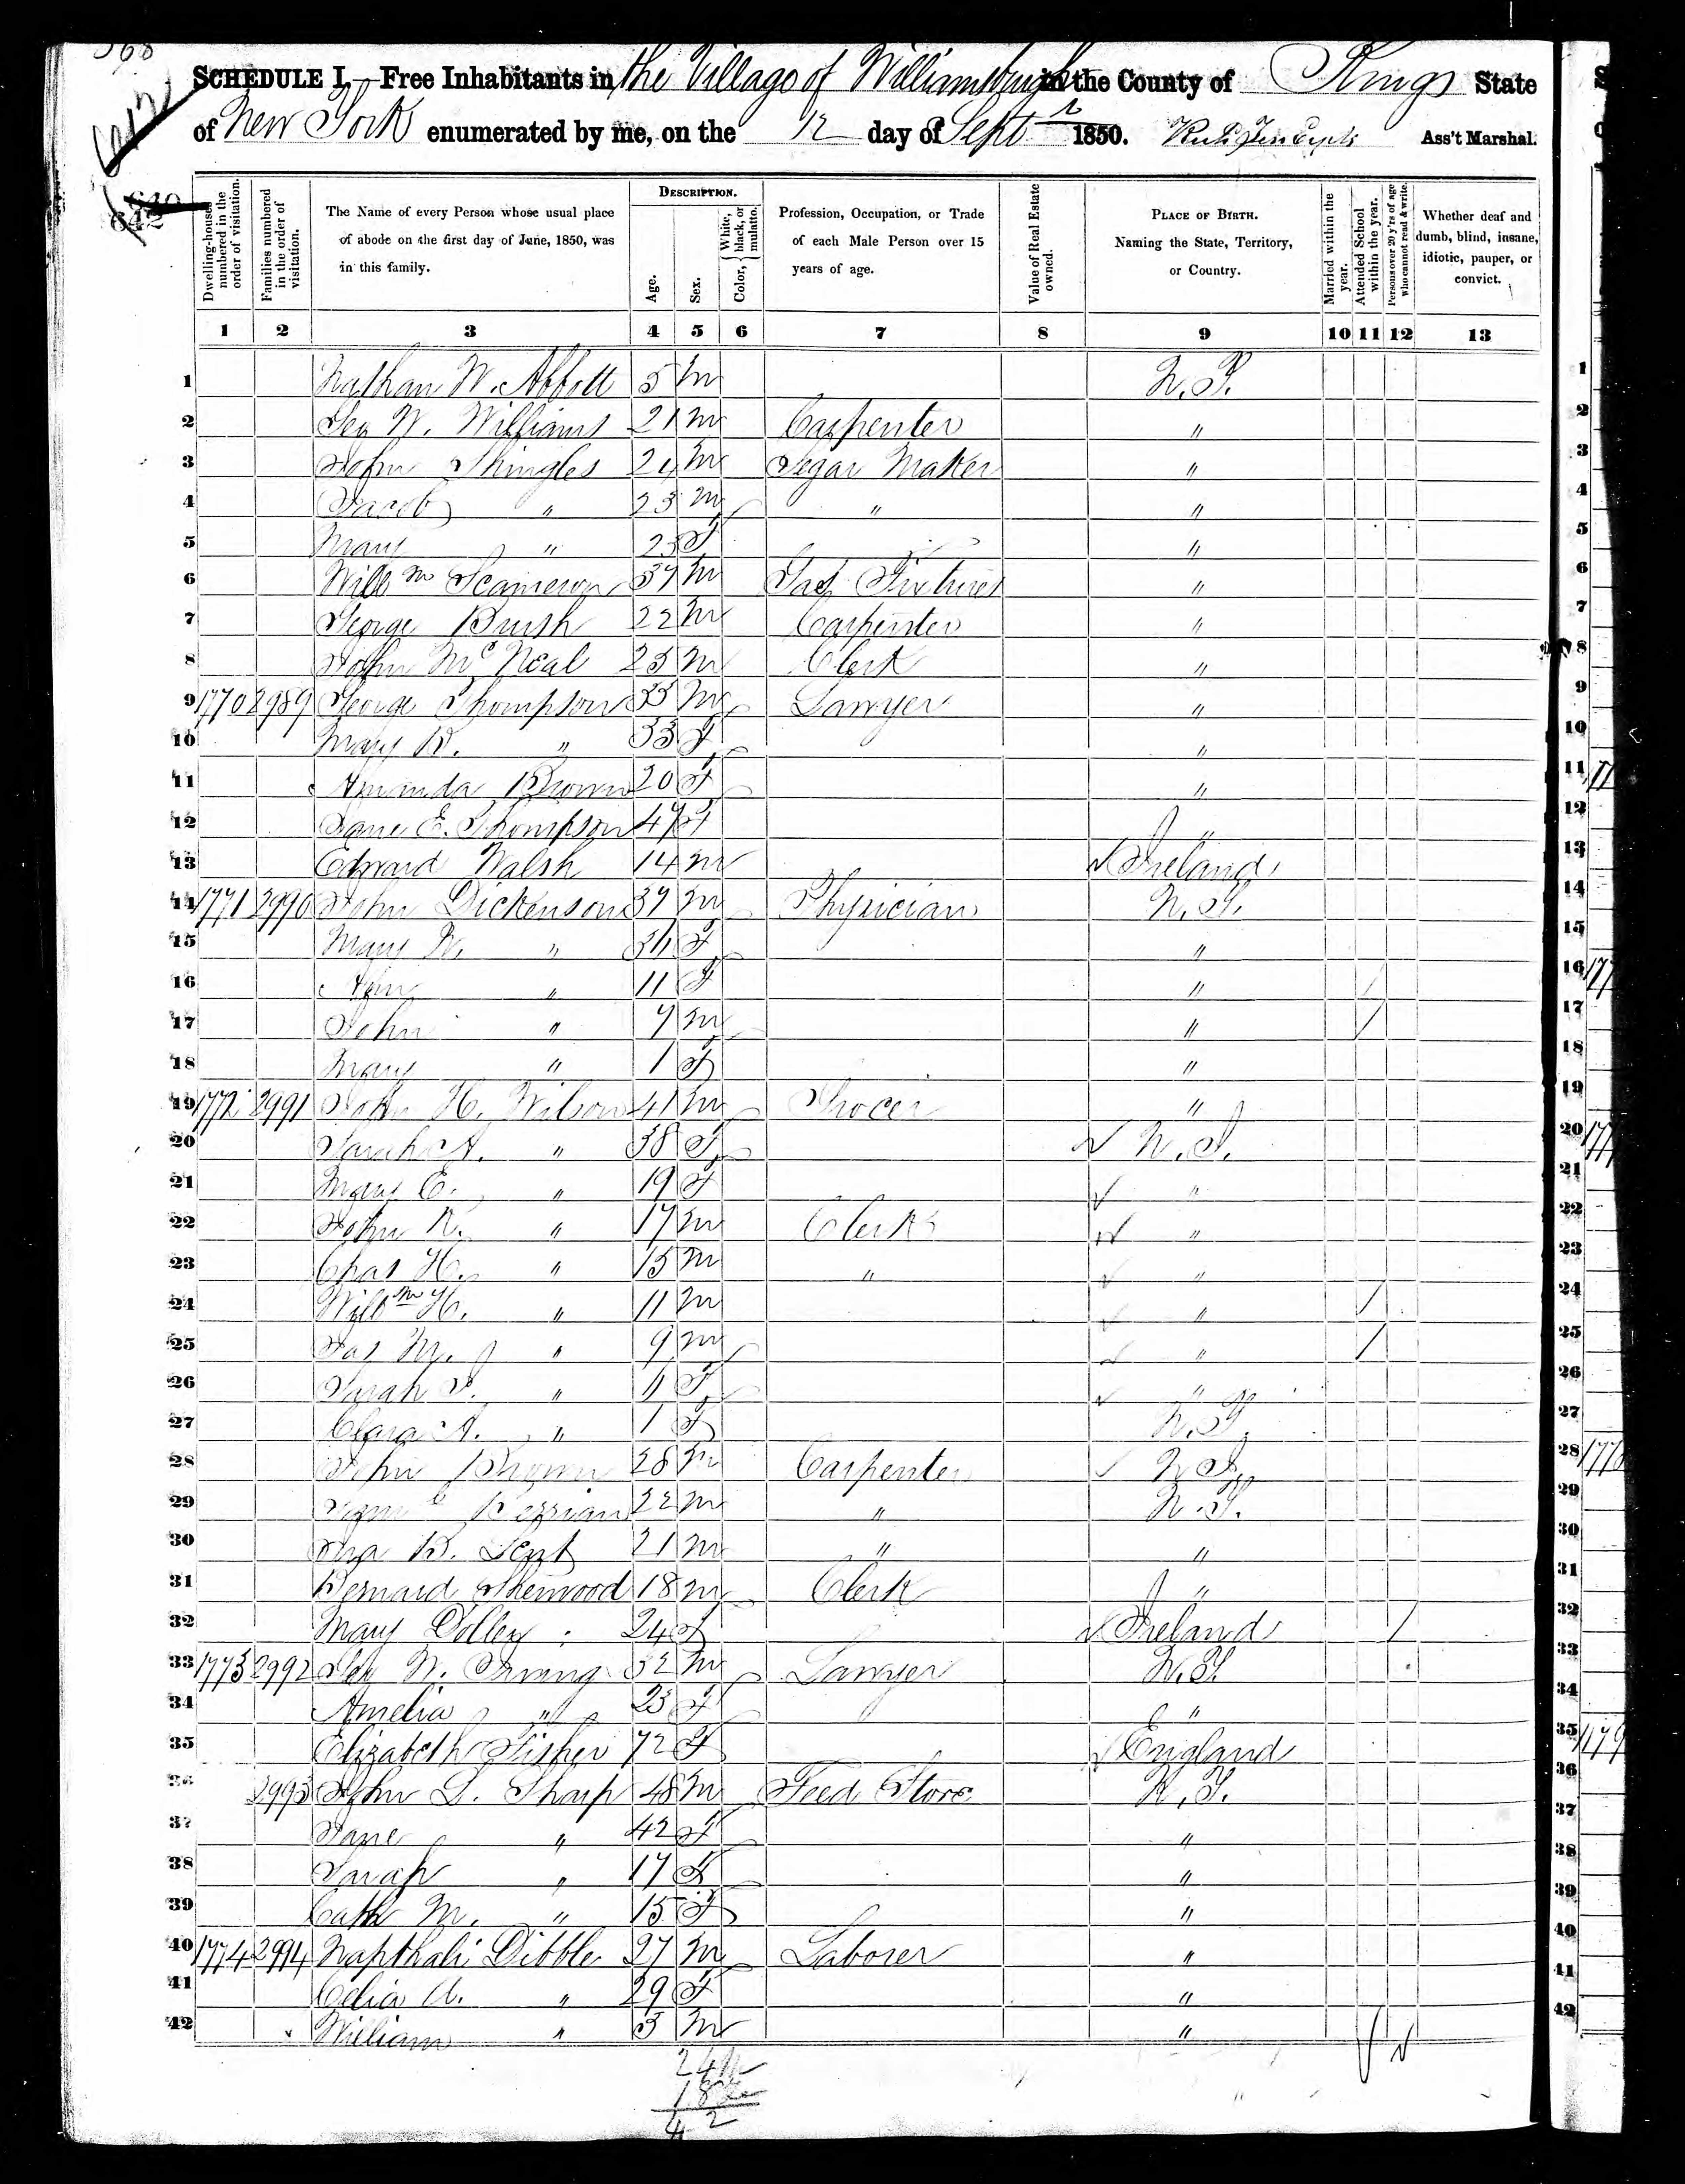 568
SCHEDULE I.—Free Inhabitants in the Village of Williamsburgh in the County of Kings State
of New York enumerated by me, on the 12 day of Sept 1850. Ass't Marshal.
642
Dwelling-houses numbered in the order of visitation.
Families numbered in the order of visitation.
The Name of every Person whose usual place of abode on the first day of June, 1850, was in this family.
DESCRIPTION.
Age.
Sex.
Color, { White, black, or mulatto.
Profession, Occupation, or Trade of each Male Person over 15 years of age.
Value of Real Estate owned.
PLACE OF BIRTH. Naming the State, Territory, or Country.
Married within the year.
Attended School within the year.
Persons over 20 y'rs of age who cannot read & write.
Whether deaf and dumb, blind, insane, idiotic, pauper, or convict.
1 2 3 4 5 6 7 8 9 10 11 12 13
1 Nathan W. Abbott 5 M N.Y.
2 Geo W. Williams 21 M Carpenter "
3 John Shingles 24 M Segar Maker "
4 Jacob " 23 M " "
5 Mary " 23 F "
6 Willm Scameron 37 M Gas Fixtures "
7 George Brush 22 M Carpenter "
8 John Mc Neal 25 M Clerk "
9 1770 2989 George Thompson 35 M Lawyer "
10 Mary B. " 33 F "
11 Amanda Brown 20 F "
12 Jane E. Thompson 47 F "
13 Edward Walsh 14 M Ireland
14 1771 2990 John Dickenson 37 M Physician N.Y.
15 Mary N. " 34 F "
16 Ann " 11 F " /
17 John " 7 M " /
18 Mary " 1 F "
19 1772 2991 John H. Wilson 41 M Grocer "
20 Sarah A. " 38 F N.J.
21 Mary E. " 19 F "
22 John R. " 17 M Clerk "
23 Chas H. " 15 M " "
24 Willm H. " 11 M " /
25 Jas M. " 9 M " /
26 Sarah J. " 4 F "
27 Clara A. " 1 F N.Y.
28 John Brown 28 M Carpenter N.J.
29 Saml Berrian 22 M " N.Y.
30 Ira B. Lent 21 M " "
31 Bernard Sherwood 18 M Clerk "
32 Mary Colley 24 F Ireland /
33 1773 2992 Geo W. Irving 32 M Lawyer N.Y.
34 Amelia " 23 F "
35 Elizabeth Fisher 72 F England
36 2993 John L. Sharp 48 M Feed Store N.Y.
37 Jane " 42 F "
38 Sarah " 17 F "
39 Cath M. " 15 F "
40 1774 2994 Napthali Dibble 27 M Laborer "
41 Celia A. " 29 F "
42 William " 3 M "
24 M
18 F
42